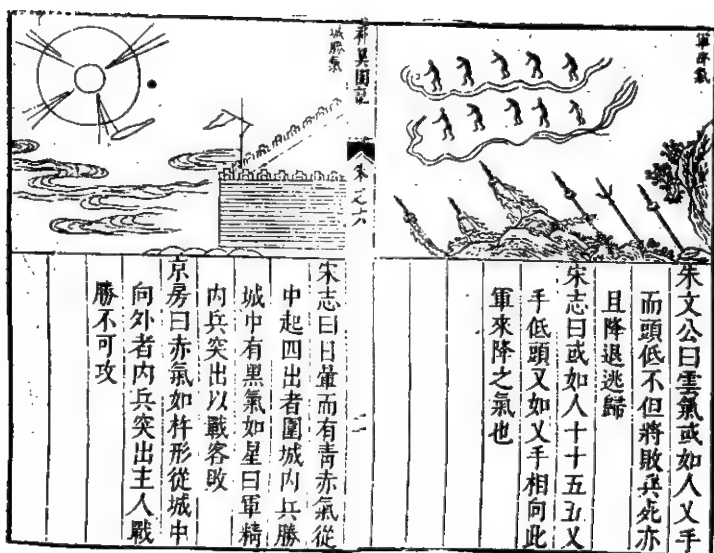 軍降氣
朱文公曰雲氣或如人叉手
而頭低不但將敗兵死亦
且降退逃歸
宋志曰或如人十十五五叉
手低頭又如叉手相向此
軍來降之氣也
朱之六
二
城勝氣
宋志曰日暈而有靑赤氣從
中起四出者圍城内兵勝
城中有黑氣如星曰軍精
内兵突出以戰客敗
京房曰赤氣如杵形從城中
向外者内兵突出主人戰
勝不可攻